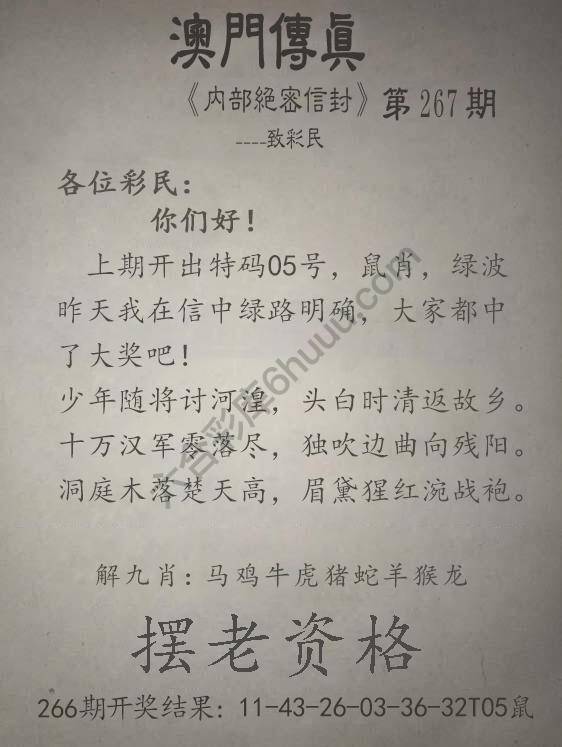 澳門傳眞
《内部絕密信封》第267期
----致彩民
各位彩民：
你们好！
上期开出特码05号，鼠肖，绿波
昨天我在信中绿路明确，大家都中
了大奖吧！
少年随将讨河湟，头白时清返故乡。
十万汉军零落尽，独吹边曲向残阳。
洞庭木落楚天高，眉黛猩红涴战袍。
解九肖：马鸡牛虎猪蛇羊猴龙
摆老资格
266期开奖结果：11-43-26-03-36-32T05鼠
六合彩库6huuu.com